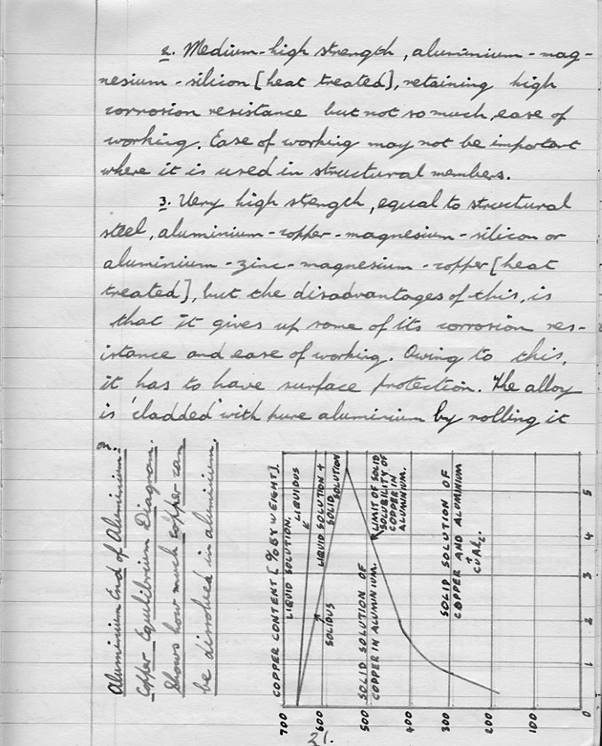 2. Medium-high strength, aluminium-mag-
nesium-silicon [heat treated], retaining high
corrosion resistance but not so much, ease of
working. Ease of working may not be important
where it is used in structural members.
3. Very high strength, equal to structural
steel, aluminium-copper-magnesium-silicon or
aluminium-zinc-magnesium-copper [heat
treated], but the disadvantages of this, is
that it gives up some of its corrosion res-
istance and ease of working. Owing to this,
it has to have surface protection. The alloy
is 'cladded' with pure aluminium by rolling it
Aluminium End of Aluminium:
Copper Equilibrium Diagram.
Shows how much copper can
be dissolved in aluminium.
COPPER CONTENT [% BY WEIGHT].
LIQUID SOLUTION.
LIQUIDUS
LIQUID SOLUTION +
SOLID
SOLUTION
SOLIDUS
LIMIT OF SOLID
SOLUBILITY OF
COPPER IN
ALUMINIUM.
SOLID SOLUTION OF
COPPER IN ALUMINIUM.
SOLID SOLUTION OF
COPPER AND ALUMINIUM
CuAl2.
5
4
3
2
1
0
700
600
500
400
300
200
100
0
21.